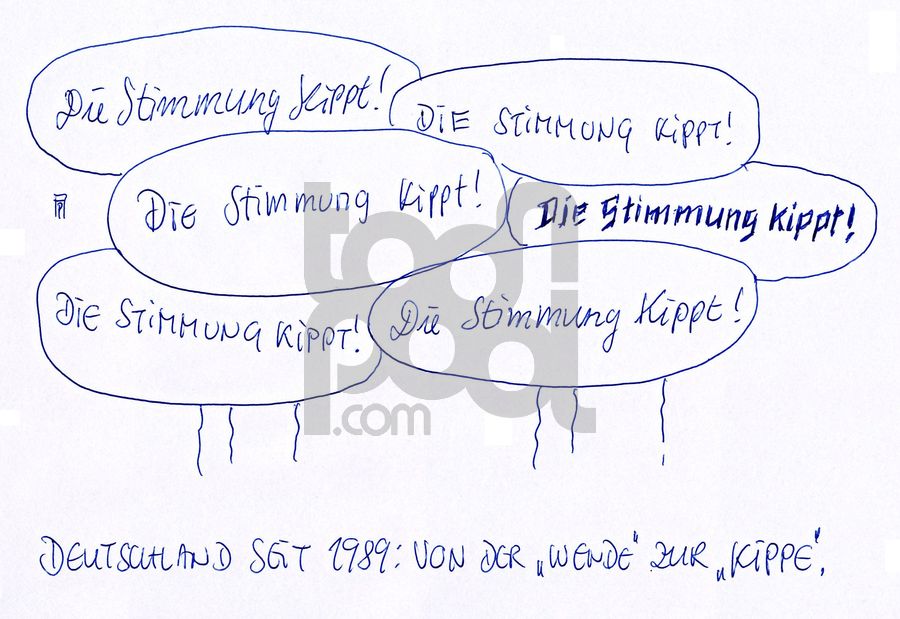 Die Stimmung kippt!
DIE STIMMUNG KIPPT!
Die Stimmung kippt!
Die Stimmung kippt!
DIE STIMMUNG KIPPT!
Die Stimmung kippt!
toonpool
.com
DEUTSCHLAND SEIT 1989: VON DER „WENDE" ZUR „KIPPE".